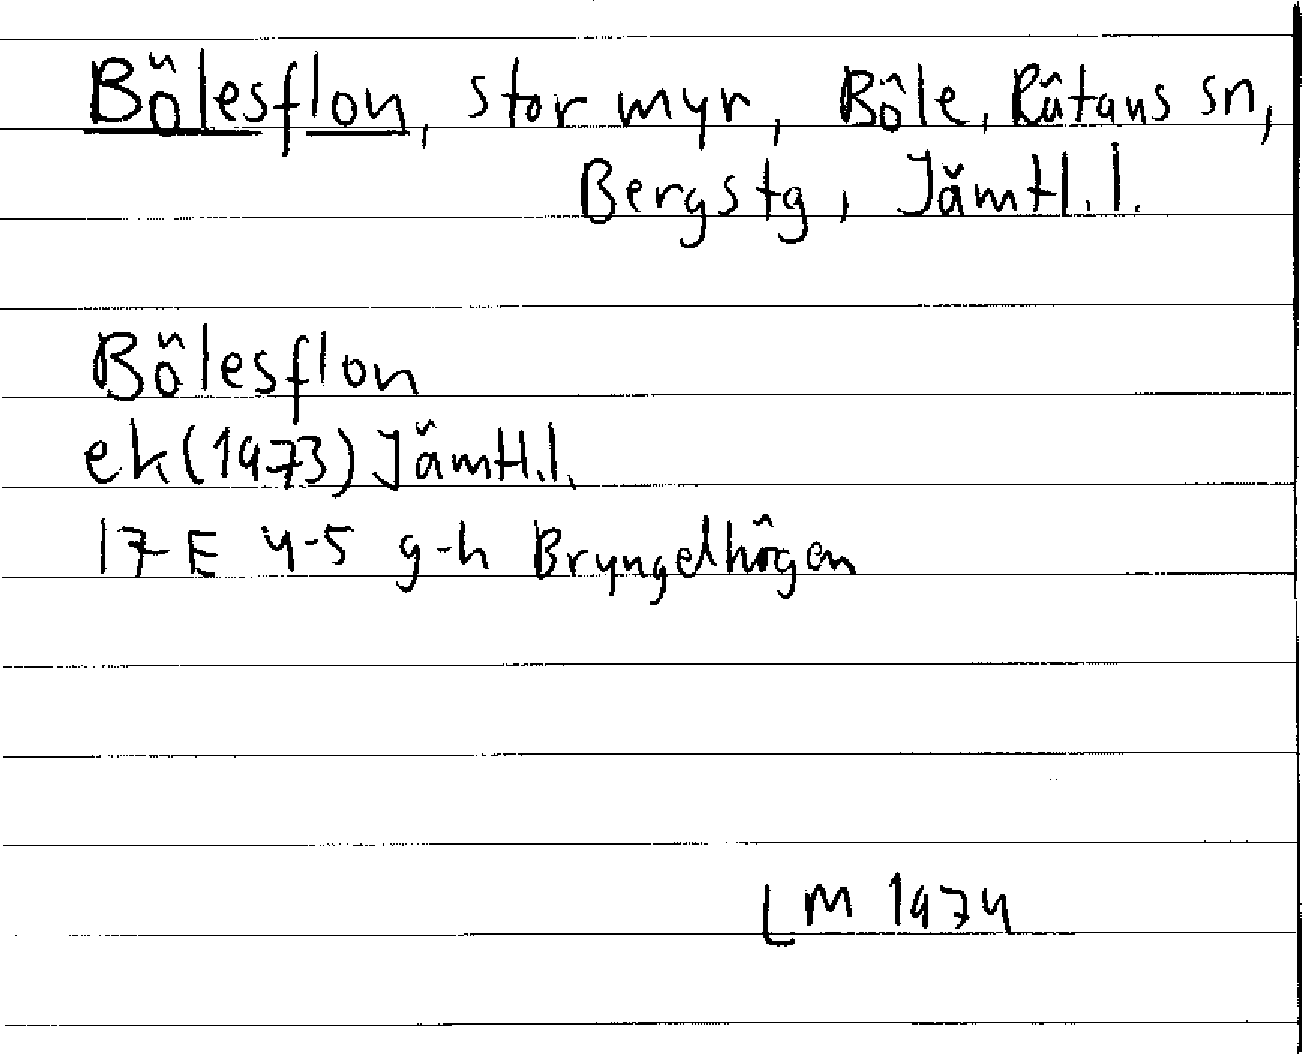 Bölesflon, stor myr, Böle, Rätans sn,
Bergstg, Jämtl.l.
Bölesflon
ek(1973) Jämtl.l.
17E 4-5 g-h Bryngelhögen
LM 1974